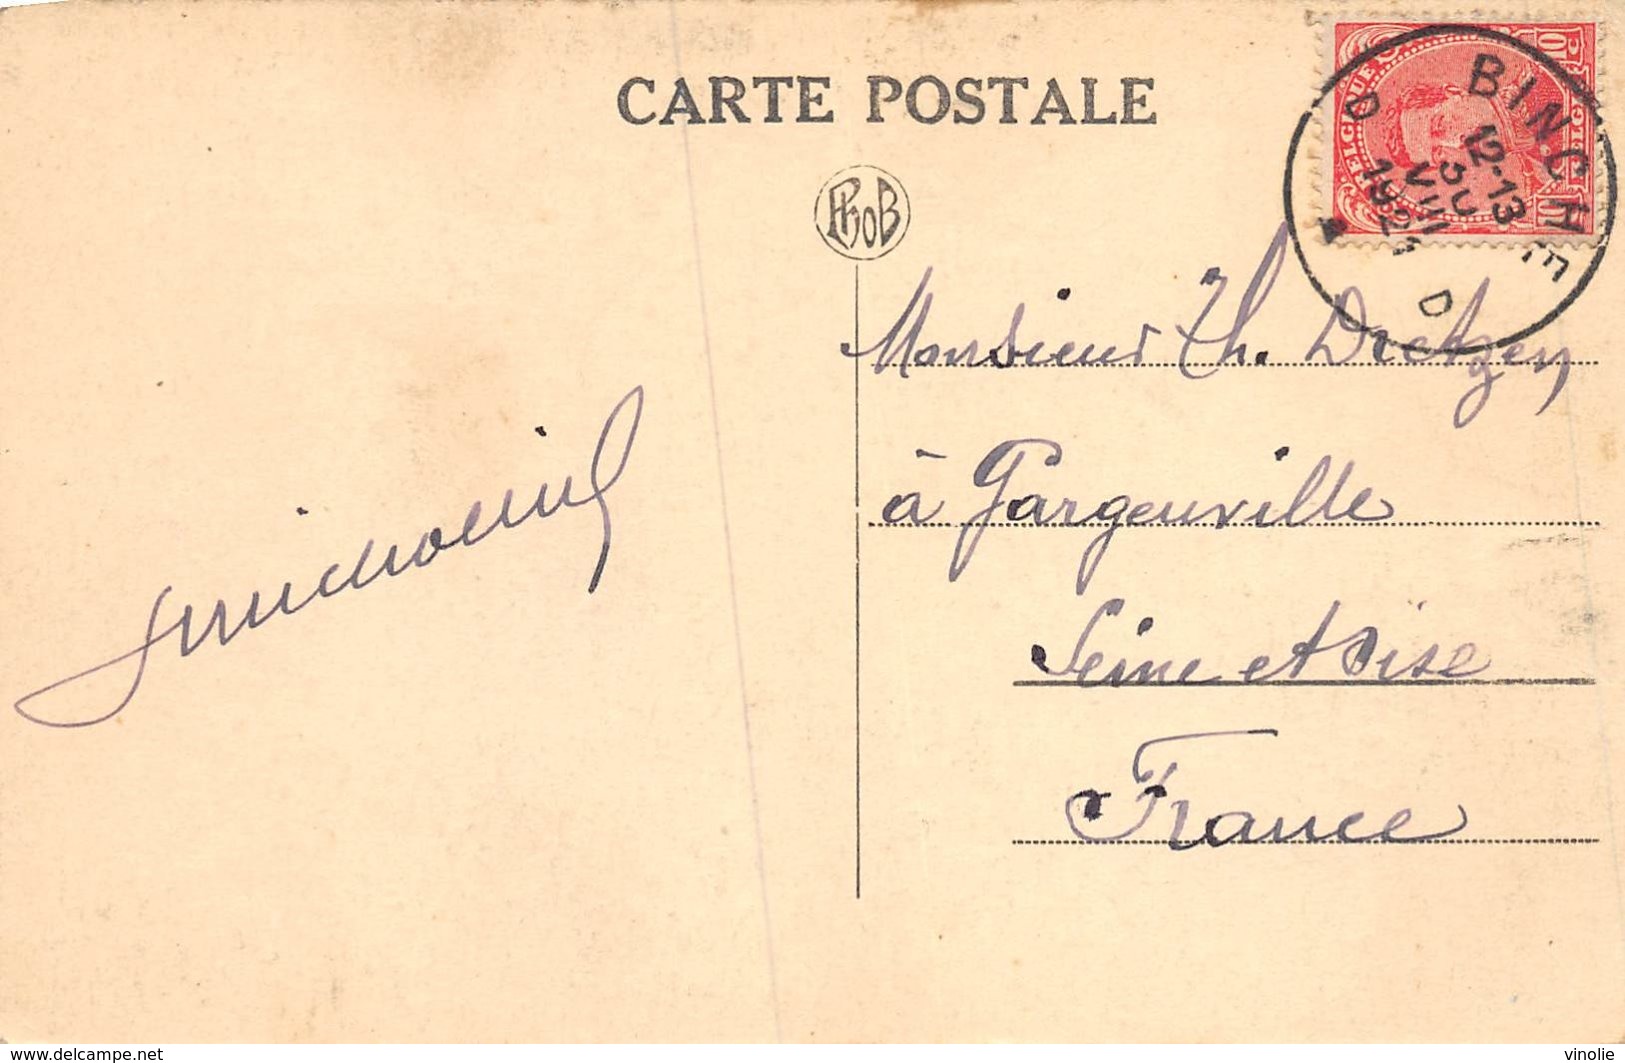 CARTE POSTALE
PhoB
BELGIQUE
BELGIË
10 C
10 C
BINCHE
12-13
30
VIII
1921
D D
Monsieur Th. Dretzen
à Gargenville
Seine et Oise
France
www.delcampe.net
vinolie